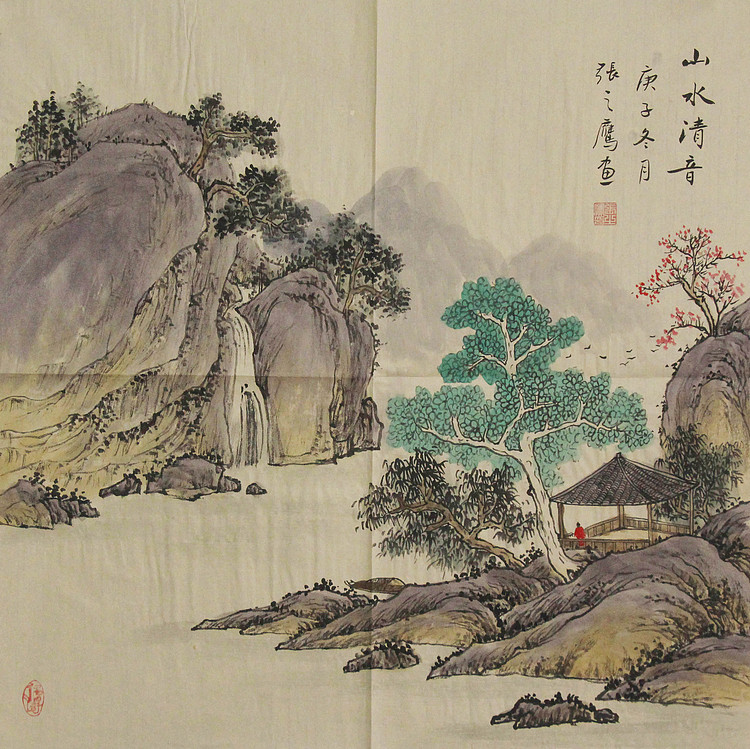 山水清音
庚子冬月
張之鷹画